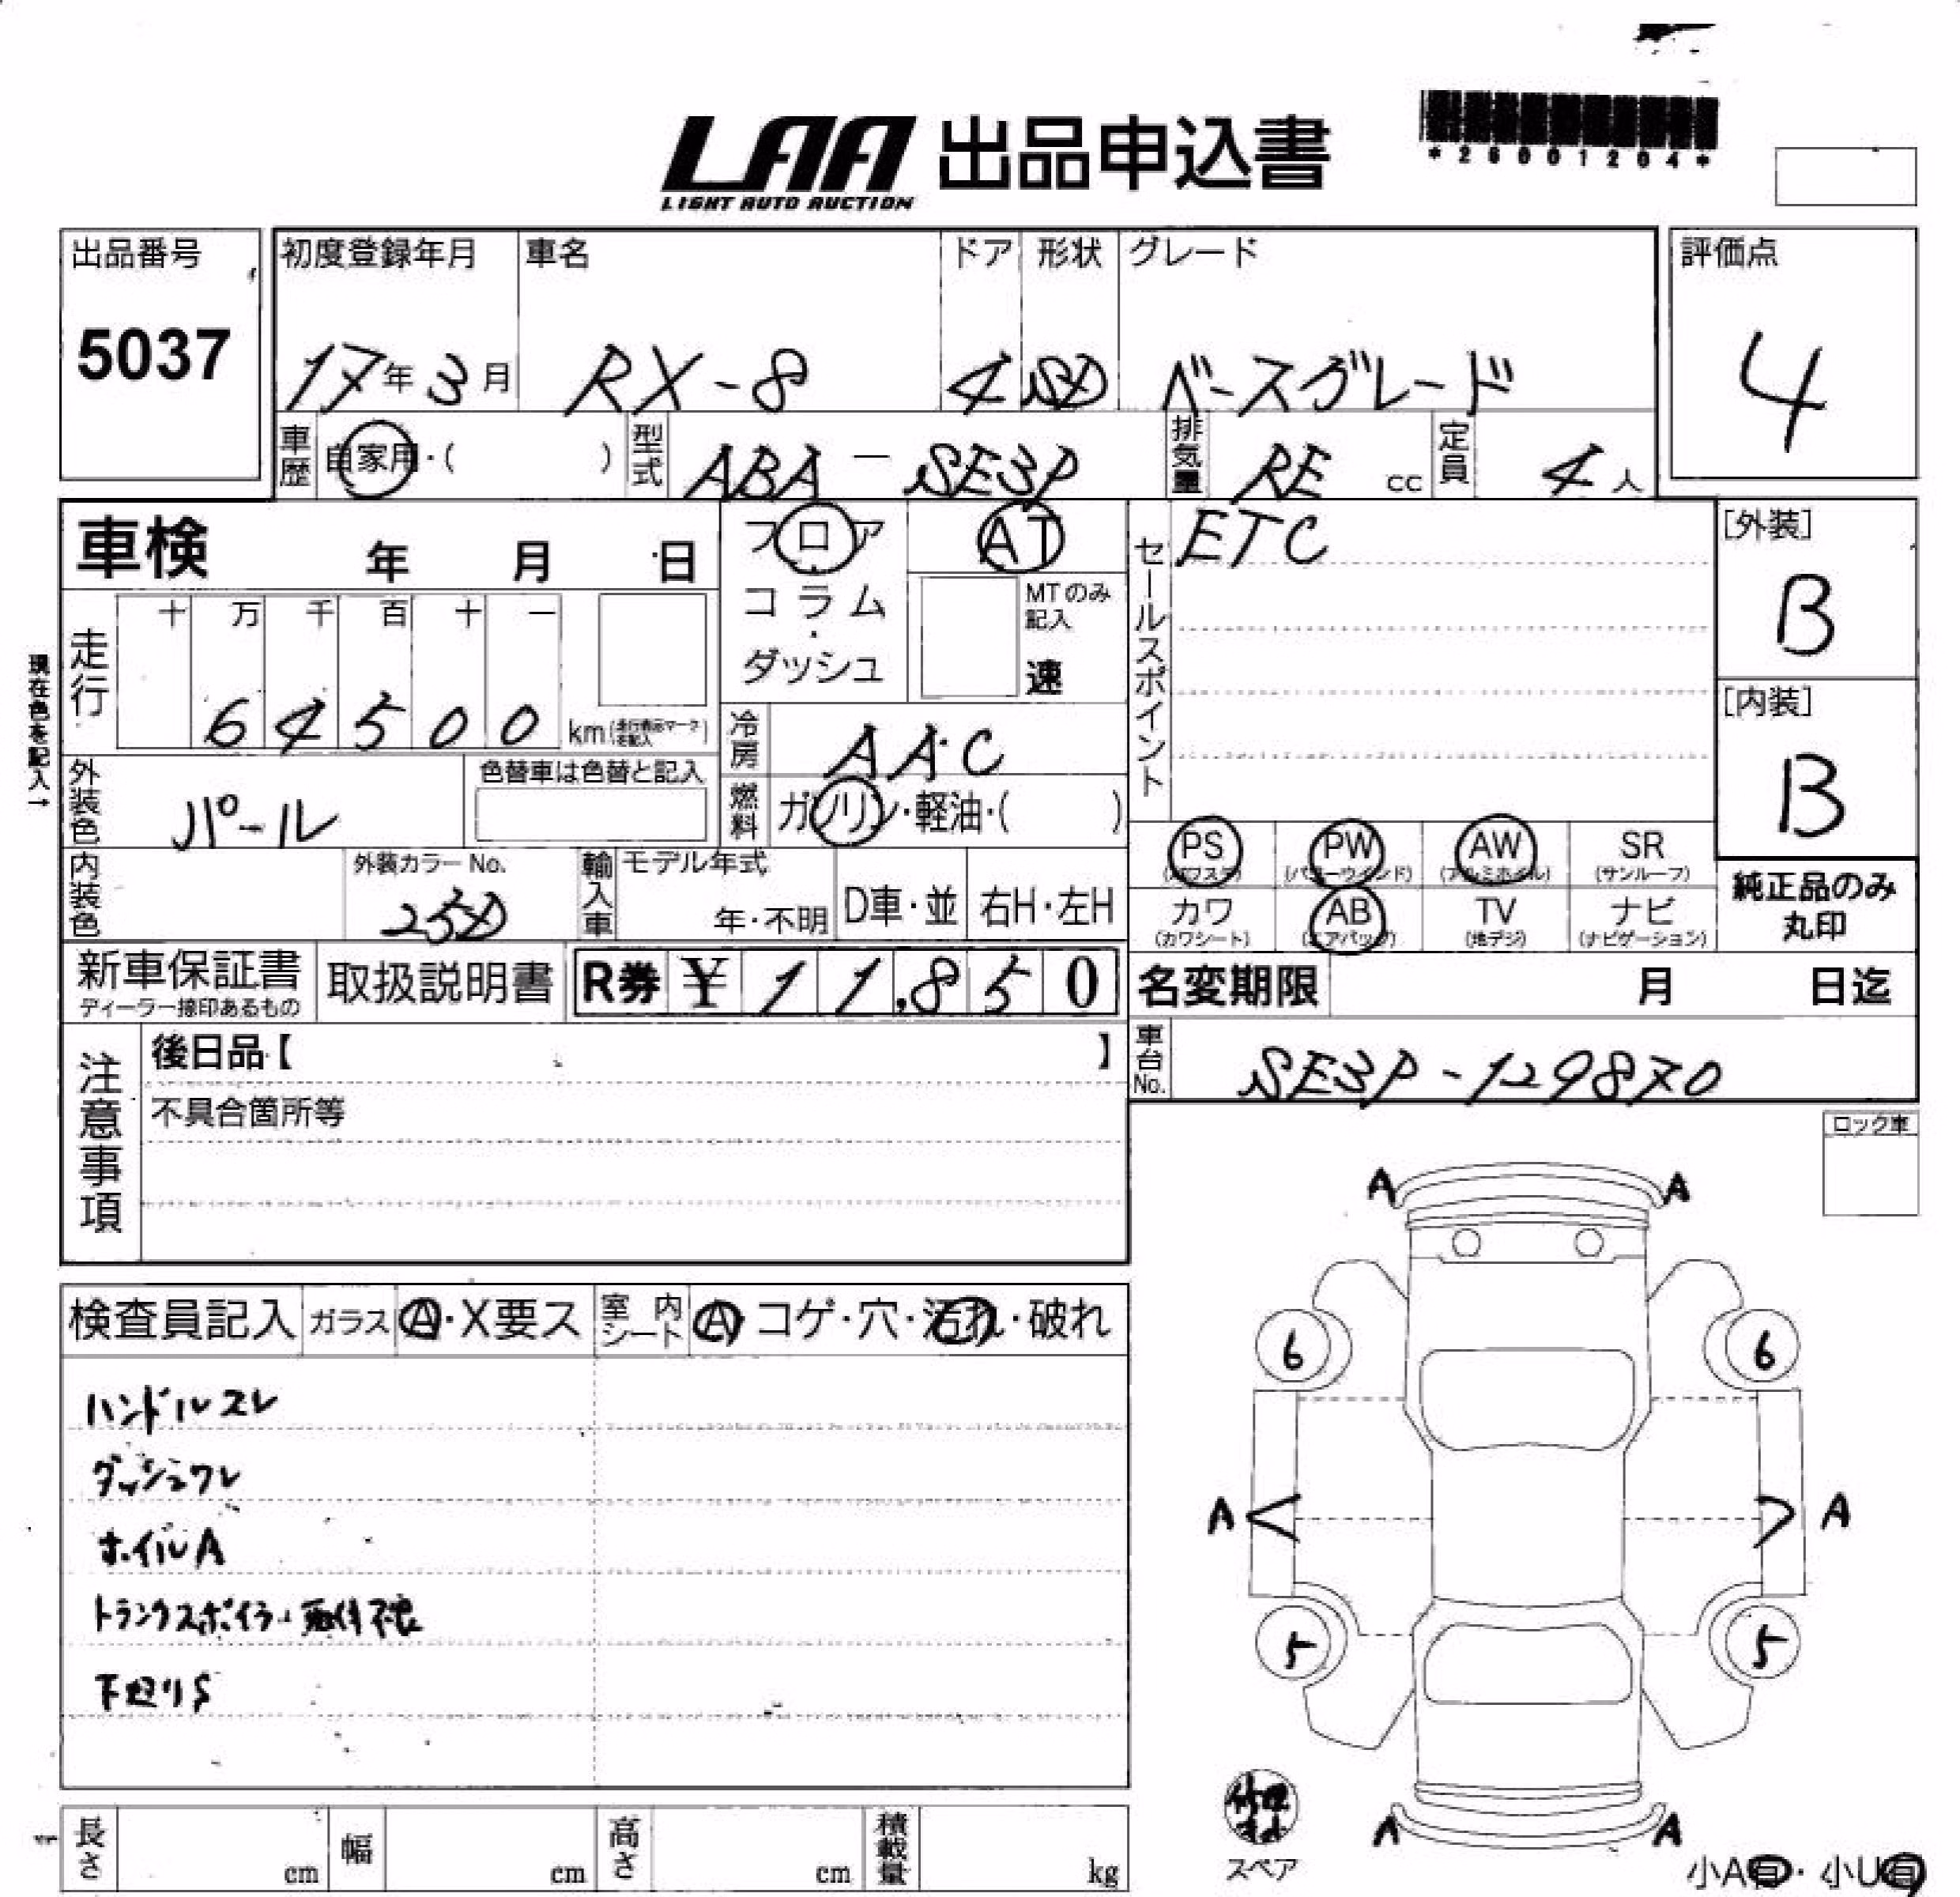 LAA 出品申込書
LIGHT AUTO AUCTION
*26001204*
出品番号 初度登録年月 車名 ドア 形状 グレード 評価点
5037 17年3月 RX-8 4 SD ベースグレード 4
車歴 自家用・( ) 型式 ABA-SE3P 排気量 RE cc 定員 4人
車検 年 月 日 フロア AT セールスポイント ETC [外装]
コラム・ MTのみ記入 B
ダッシュ 速
現在色を記入→
走行 十 万 千 百 十 一
64500 km(走行表示マークを記入)
[内装]
B
冷房 AAC
外装色 パール 色替車は色替と記入 燃料 ガソリン・軽油・( )
PS PW AW SR
(パワステ) (パワーウインド) (アルミホイル) (サンルーフ)
純正品のみ
丸印
内装色 外装カラーNo. 25D 輸入車 モデル年式 年・不明 D車・並 右H・左H
カワ AB TV ナビ
(カワシート) (エアバッグ) (地デジ) (ナビゲーション)
新車保証書 取扱説明書 R券 ¥11,850 名変期限 月 日迄
ディーラー捺印あるもの
注意事項 後日品【 】 車台No. SE3P-129870
不具合箇所等
ロック車
検査員記入 ガラス A・X要ス 室内シート A・コゲ・穴・汚れ・破れ
ハンドルスレ
ダッシュワレ
ホイルA
トランクスポイラー取付不良
下廻りS
A A
6 6
A A
5 5
A A
スペア
小A有・小U有
長さ cm 幅 cm 高さ cm 積載量 kg